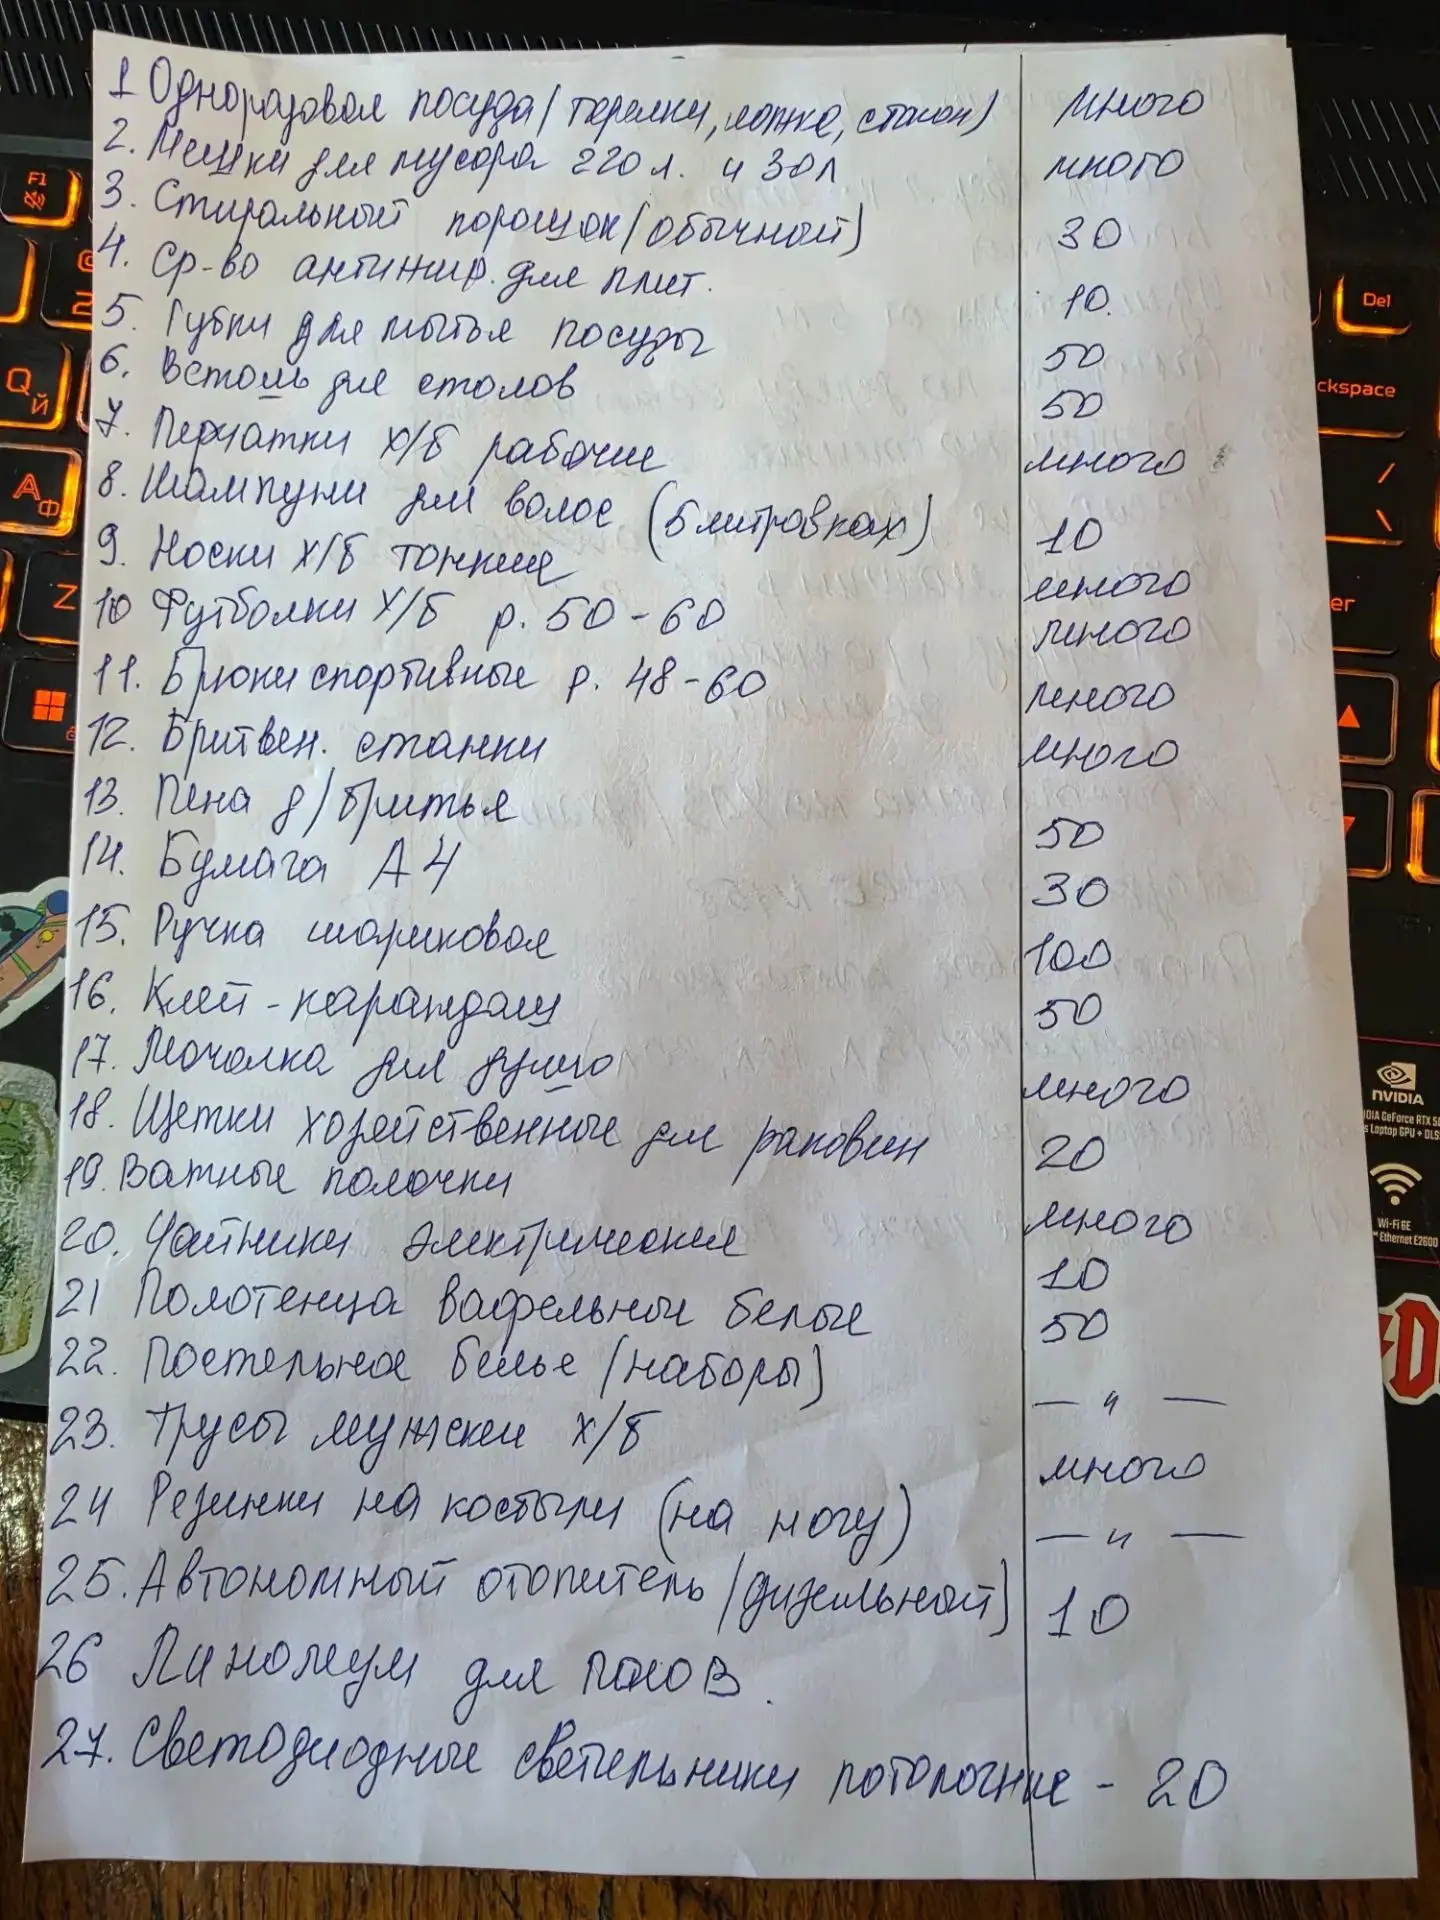 1 Одноразовая посуда (тарелки, ложка, стакан) много
2. Мешки для мусора 220 л. и 30 л много
3. Стиральный порошок (обычный) 30
4. Ср-во антижир. для плит. 10.
5. Губки для мытья посуды 50
6. для столов 50
7. Перчатки х/б рабочие много
8. Шампуни для волос (5 литровках) 10
9. Носки х/б тонкие много
10 Футболки х/б р. 50-60 много
11. Брюки спортивные р. 48-60 много
12. Бритвен. станки много
13. Пена д/бритья 50
14. Бумага А4 30
15. Ручка шариковая 100
16. Клей-карандаш 50
17. Мочалка для душа много
18. Щетки хозяйственные для раковин 20
19. Ватные палочки много
20. Чайники электрические 10
21 Полотенца вафельные белые 50
22. Постельное белье (наборы) — " —
23. Трусы мужские х/б много
24 Резинки на костыли (на ногу) — " —
25. Автономный отопитель (дизельный) 10
26 Линолеум для полов.
27. Светодиодные светильники потолочные - 20
F1
Q
Й
А
Ф
Z
Del
ckspace
er
NVIDIA
IDIA GeForce RTX 50
s Laptop GPU + DLS
Wi-Fi 6E
Ethernet E2600